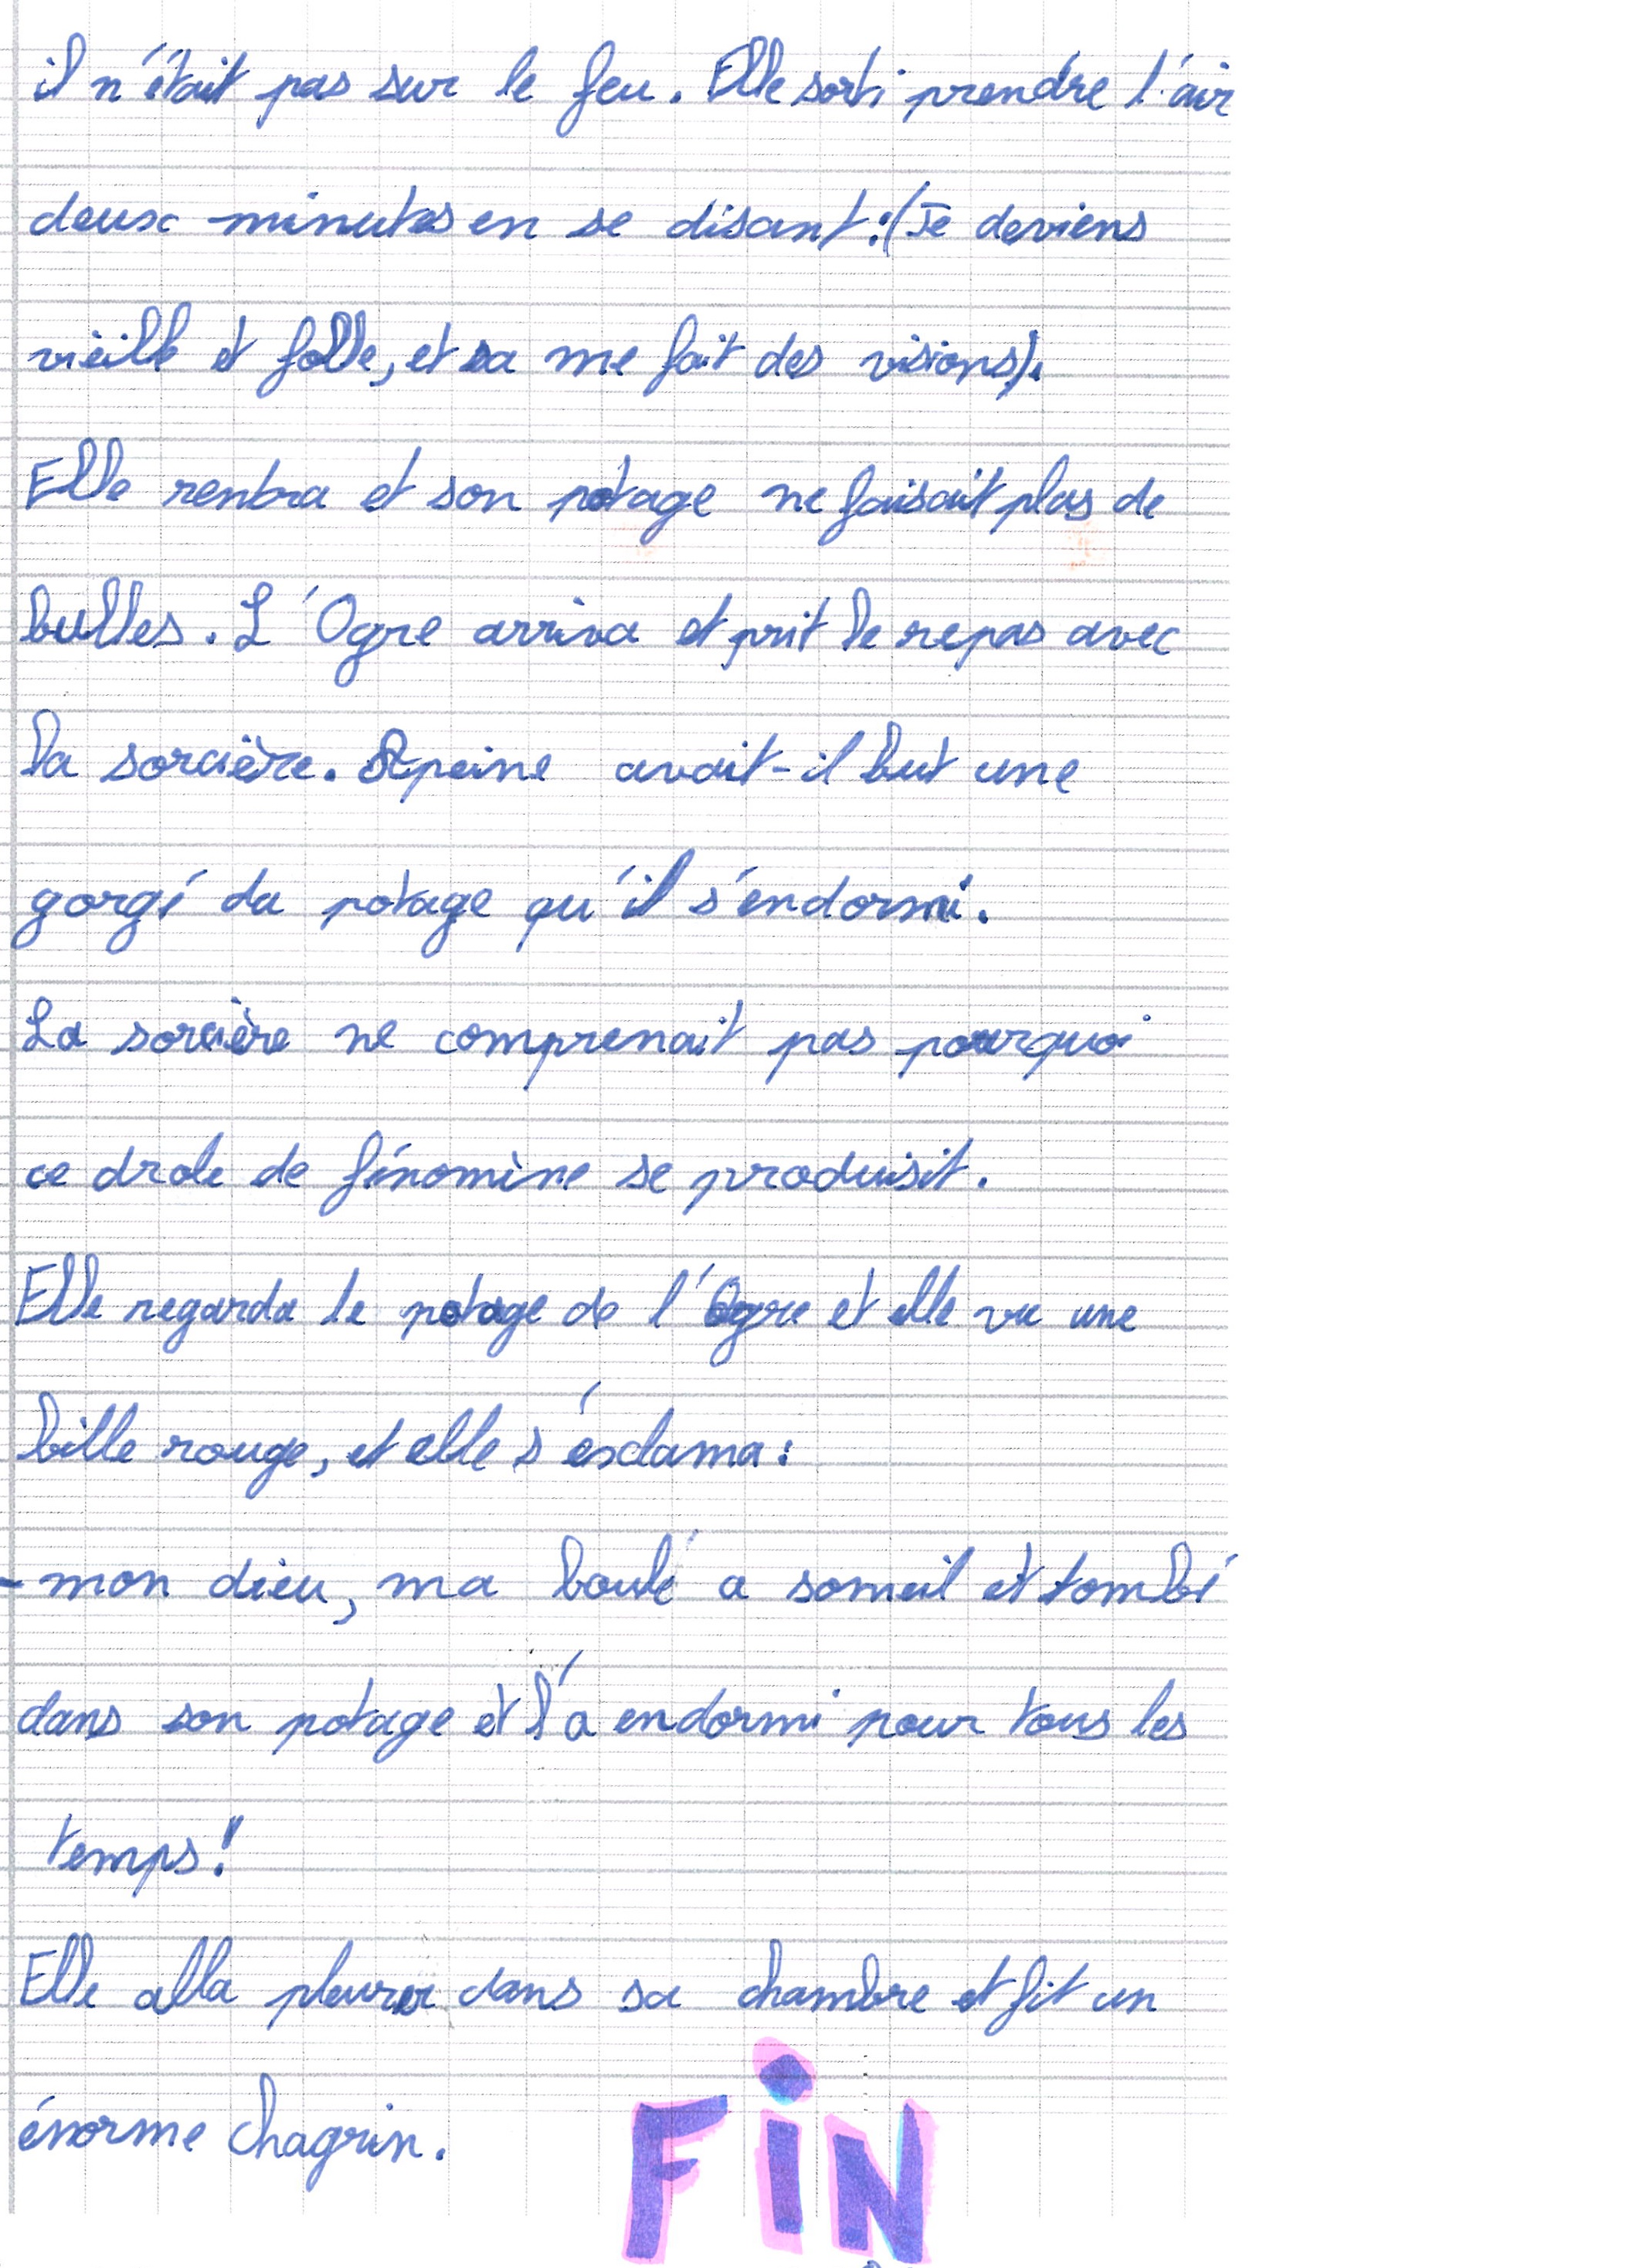 il n'était pas sur le feu. Elle sorti prendre l'air
deux minutes en se disant : (Je deviens
vieille et folle, et sa me fait des visions).
Elle rentra et son potage ne faisait plus de
bulles. L'Ogre arriva et prit le repas avec
la sorcière. A peine avait-il but une
gorgé du potage qu'il s'endormi.
La sorcière ne comprenait pas pourquoi
ce drole de fénomène se produisit.
Elle regarda le potage de l'Ogre et elle vu une
bille rouge, et elle s'ésclama :
- mon dieu, ma boule a someil et tombé
dans son potage et l'a endormi pour tous les
temps !
Elle alla pleurer dans sa chambre et fit un
énorme chagrin.
FiN